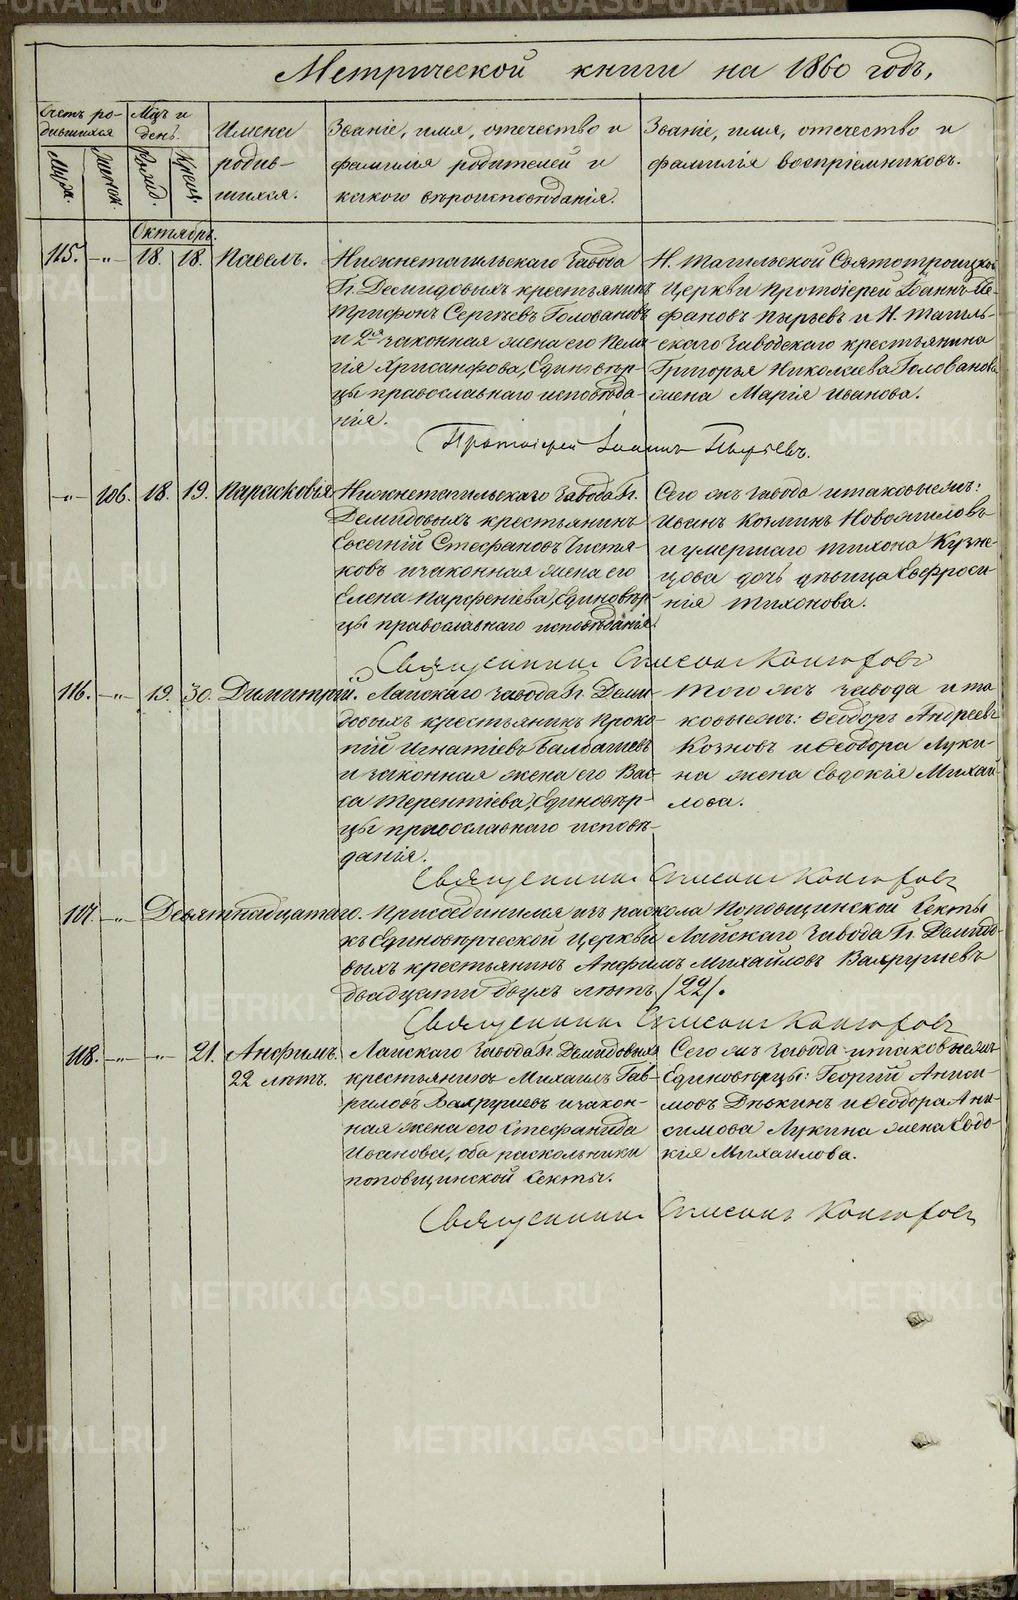 Метрической книги на 1860 годъ,
Счетъ ро-
дившихся
Муж.
Женск.
Мцъ и
день.
Рожд.
Крещ.
Имена
родив-
шихся.
Званіе, имя, отечество и
фамилія родителей и
какого вѣроисповѣданія.
Званіе, имя, отечество и
фамилія воспріемниковъ.
Октябрь.
115. -"- 18. 18. Павелъ.
Нижнетагильскаго завода
Гг. Демидовыхъ крестьянинъ
Трифонъ Сергѣевъ Головановъ
и 2я законная жена его Пела-
гія Хрисанфова, Единовѣр-
цы православнаго исповѣда-
нія.
Н. Тагильской Святотроицкой
Церкви Протоіерей Іоаннъ Сте-
фановъ Пырьевъ и Н. Тагиль-
скаго заводскаго крестьянина
Григорья Николаева Голованова
жена Марія Иванова.
Протоіерей Іоаннъ Пырьевъ.
-"- 106. 18. 19. Парасковья
Нижнетагильскаго завода Гг.
Демидовыхъ крестьянинъ
Евсегній Стефановъ Чистя-
ковъ и законная жена его
Елена Парфеніева, Единовѣр-
цы православнаго исповѣданія.
Сего жъ завода и таковые жъ:
Иванъ Козминъ Новожиловъ
и умершаго Тихона Кузне-
цова дочь дѣвица Евфроси-
нія Тихонова.
Священникъ Симеонъ Конюховъ
116. -"- 19. 30. Димитрій.
Лайскаго завода Гг. Деми-
довыхъ крестьянинъ Проко-
пій Игнатіевъ Балбашевъ
и законная жена его Вас-
са Терентіева, Единовѣр-
цы православнаго исповѣ-
данія.
Того жъ завода и та-
ковые жъ: Ѳеодоръ Андреевъ
Козновъ и Ѳеодора Луки-
на жена Евдокія Михай-
лова.
Священникъ Симеонъ Конюховъ
107. -"- Девятнадцатаго. Присоединился изъ раскола Поповщинской секты
къ Единовѣрческой Церкви Лайскаго завода Гг. Демидо-
выхъ крестьянинъ Анфимъ Михайловъ Вахрушевъ
двадцати двухъ лѣтъ /22/.
Священникъ Симеонъ Конюховъ
118. -"- -"- 21. Анфимъ.
22 лѣтъ.
Лайскаго завода Гг. Демидовыхъ
крестьянинъ Михаилъ Гав-
риловъ Вахрушевъ и закон-
ная жена его Стефанида
Иванова, оба раскольники
поповщинской секты.
Сего жъ завода и таковые жъ
Единовѣрцы: Георгій Аниси-
мовъ Дѣвкинъ и Ѳеодора Ани-
симова Лукина жена Евдо-
кія Михаилова.
Священникъ Симеонъ Конюховъ
METRIKI.GASO-URAL.RU